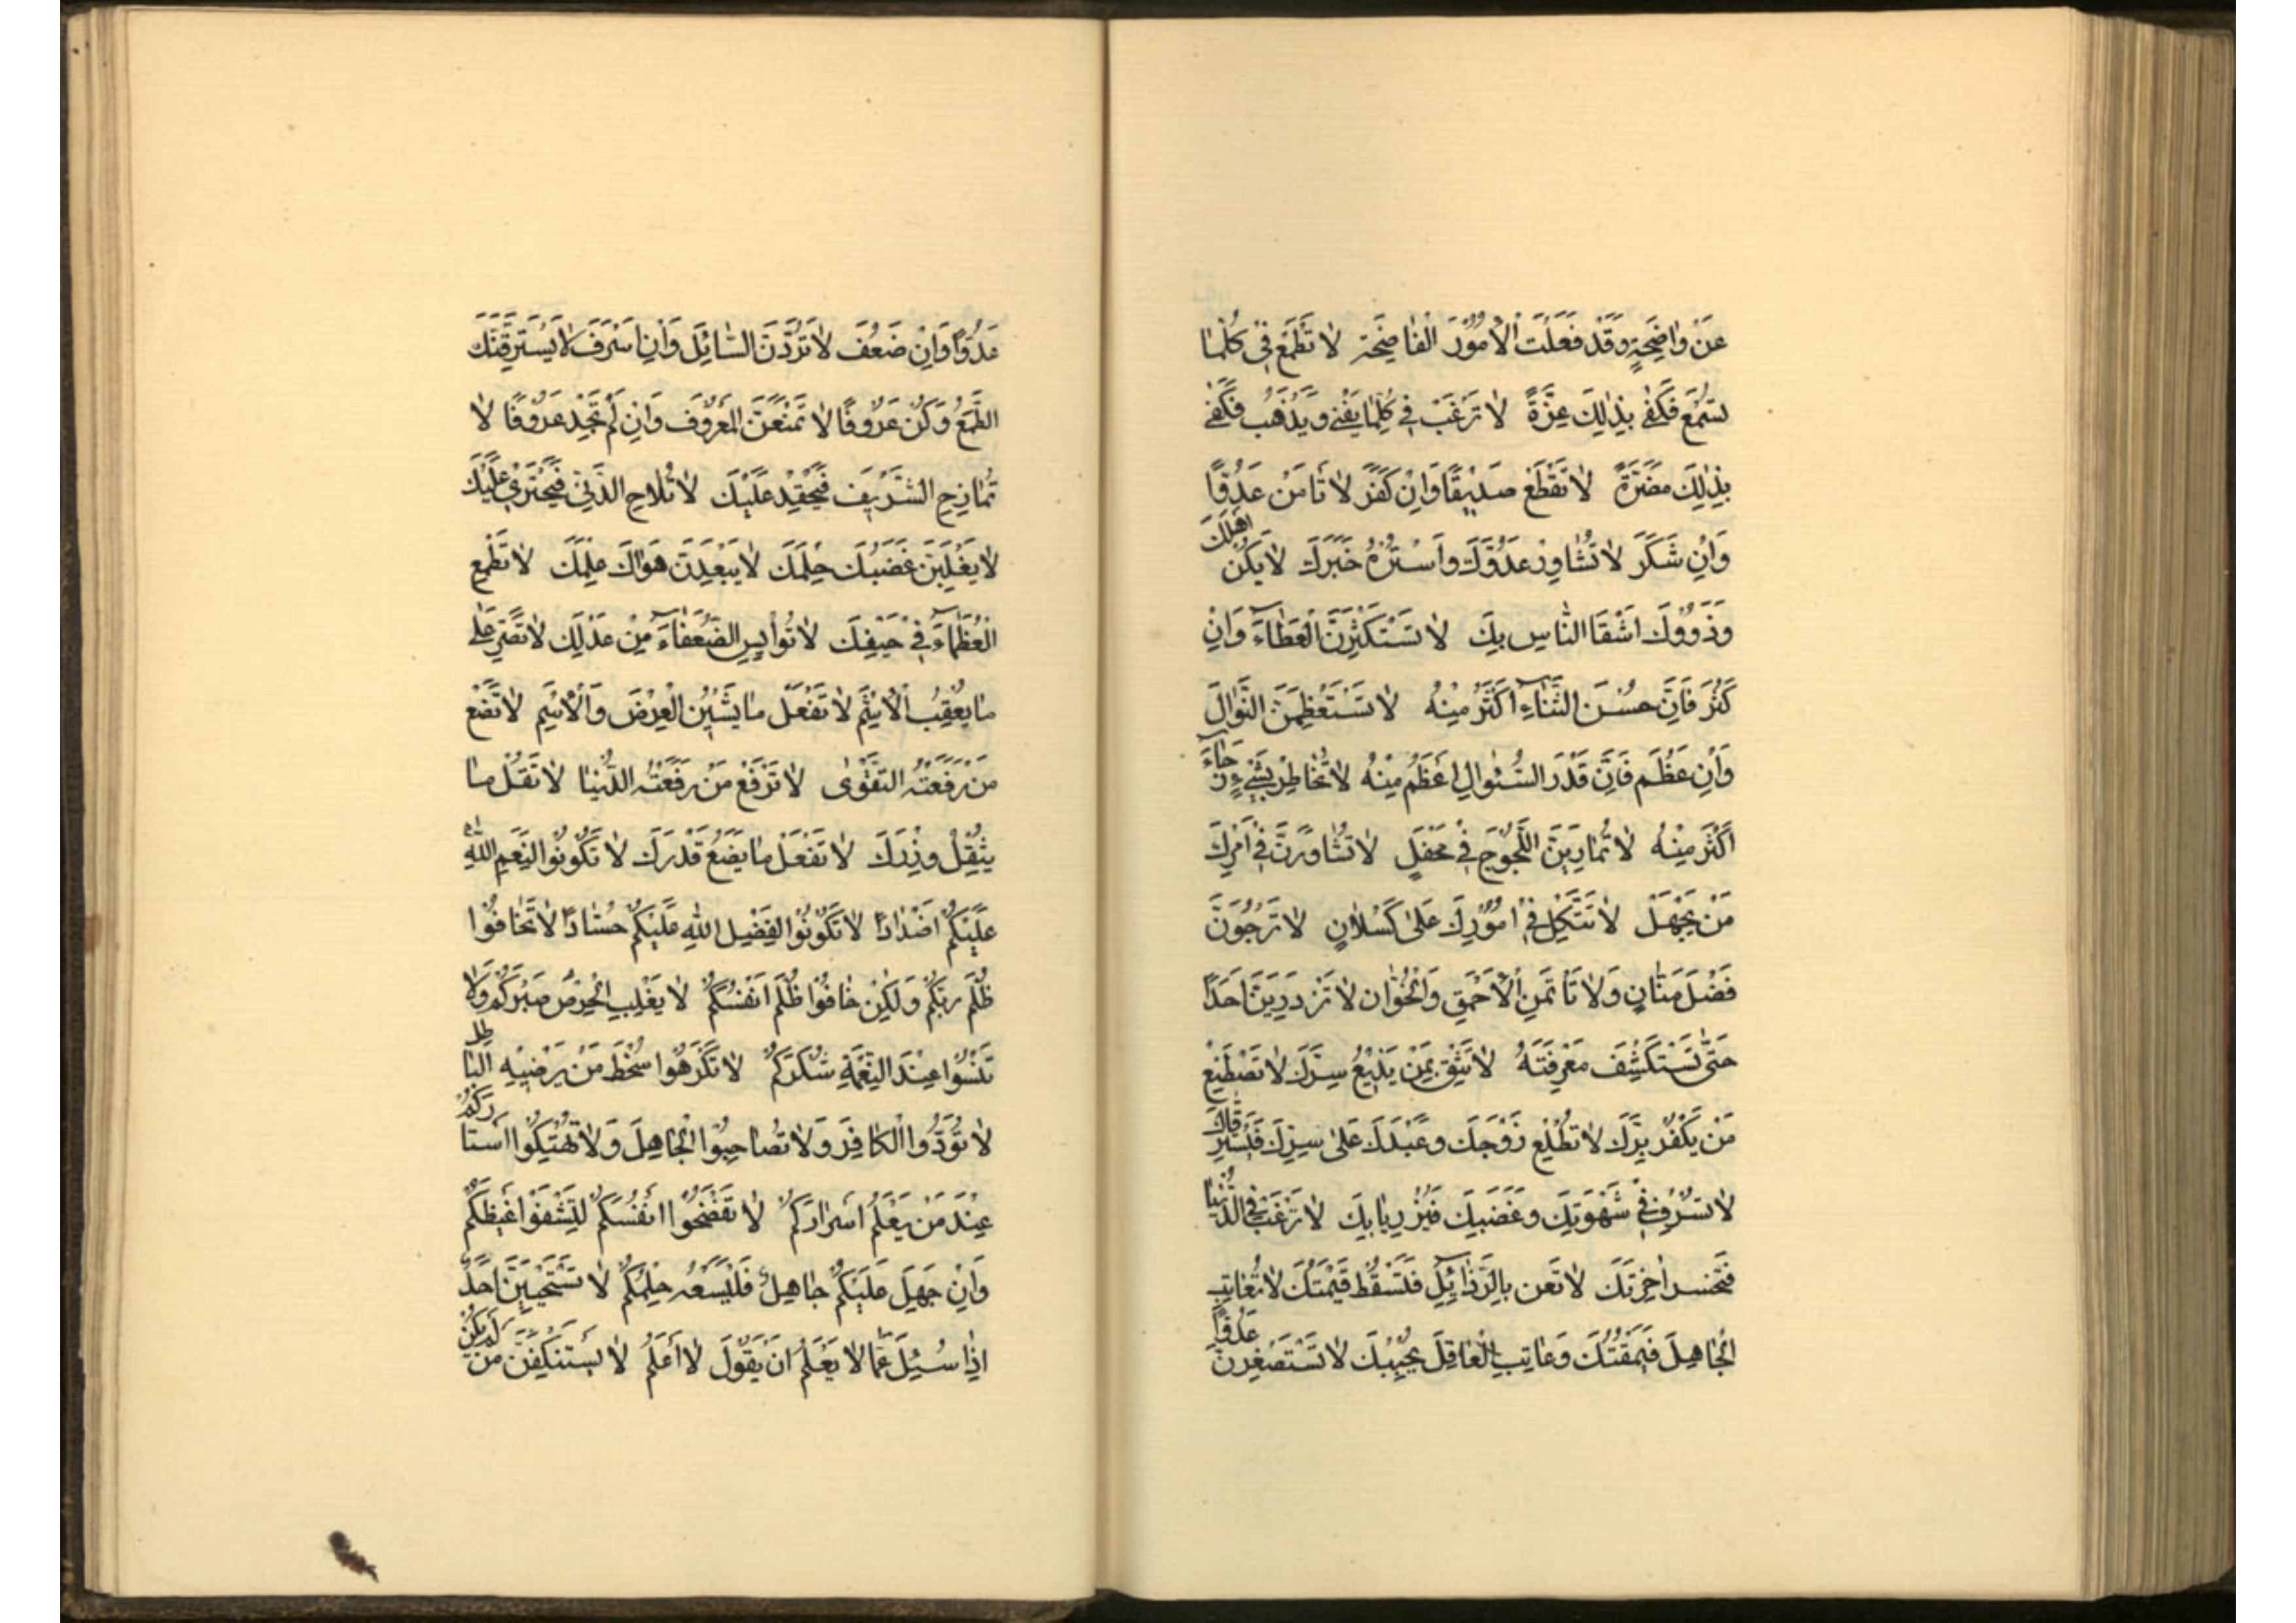 عَنْ وٰاضِحَةٍ وَقَدْ فَعَلْتَ الْاُمُوْرَ الْفٰاضِحَة لٰا تَطْمَعْ فِي كُلِّمٰا
تَسْمَعُ فَكَفىٰ بِذٰلِكَ عِزَّةً لٰا تَرْغَبْ فِي كُلِّمٰا يَفْنىٰ وَيَذْهَبُ فَكَفىٰ
بِذٰلِكَ مَضَرَّةً لٰا تَقْطَعْ صَدِيْقًا وَاِنْ كَفَرَ لٰا تَأمَنْ عَدُوًّا
وَاِنْ شَكَرَ لٰا تُشٰاوِرْ عَدُوَّكَ وَاسْتُرْهُ خَبَرَكَ لٰا يَكُنْ اَهْلُكَ
وَذَوُوْكَ اَشْقَا النّٰاسِ بِكَ لٰا تَسْتَكْثِرَنَّ الْعَطٰاءَ وَاِنْ
كَثُرَ فَاِنَّ حُسْنَ الثَّنٰاءِ اَكْثَرُ مِنْهُ لٰا تَسْتَعْظِمَنَّ النَّوٰالَ
وَاِنْ عَظُمَ فَاِنَّ قَدْرَ السُّئوٰالِ اَعْظَمُ مِنْهُ لٰا تُخٰاطِرْ بِشَيْءٍ رَجٰاءَ
اَكْثَرَ مِنْهُ لٰا تُمٰارِيَنَّ اللَّجُوْجَ فِي مَحْفَلٍ لٰا تُشٰاوِرَنَّ فِي اَمْرِكَ
مَنْ يَجْهَلْ لٰا تَتَّكِلْ فِي اُمُوْرِكَ عَلىٰ كَسْلٰانٍ لٰا تَرْجُوَنَّ
فَضْلَ مَنّٰانٍ وَلٰا تَأتَمَنِ الْاَحْمَقِ وَالْخَوّٰان لٰا تَزْدَرِيَنَّ اَحَدًا
حَتّٰى تَسْتَكْشِفَ مَعْرِفَتَهُ لٰا تَثِقْ بِمَنْ يَذِيْعُ سِرَّكَ لٰا تَصْطَنِعْ
مَنْ يَكْفُرُ بِرَّكَ لٰا تَطْلِعْ زَوْجَكَ وَعَبْدَكَ عَلىٰ سِرِّكَ فَيَسْتَرِقّٰاكَ
لٰا تَسْرُفْ فِي شَهْوَتِكَ وَغَضَبِكَ فَيُزْرِيٰا بِكَ لٰا تَرْغَبْ فِي الدُّنْيٰا
فَتَخْسَر اٰخِرَتَكَ لٰا تَعن بِالرَّذٰائِلِ فَتَسْقُط قِيْمَتُكَ لٰا تُعٰاتِبِ
الْجٰاهِلَ فَيَمْقُتَكَ وَعٰاتِبِ الْعٰاقِلَ يُحِبُّكَ لٰا تَسْتَصْغِرَنَّ عَدُوًّا
عَدُوًّا وَاِنْ ضَعُفَ لٰا تَرُدَّنَّ السّٰائِلَ وَاِنْ اَسْرَفَ لٰا يَسْتَرِقَّنَّكَ
الطَّمَعُ وَكُنْ عَزُوْفًا لٰا تَمْنَعَنَّ الْمَعْرُوْفَ وَاِنْ لَمْ تَجِدْ عَرُوْفًا لٰا
تُمٰازِحِ الشَّرِيْفَ فَيَحْقِدْ عَلَيْكَ لٰا تُلٰاحِ الدَّنِيَّ فَيَجْتَرِيَ عَلَيْكَ
لٰا يَغْلِبَنَّ غَضَبُكَ حِلْمَكَ لٰا يَبْعِدَنَّ هَوٰاكَ عِلْمَكَ لٰا تَطْمِعِ
الْعُظَمٰاءَ فِي حَيْفِكَ لٰا تُوأيِسِ الضُّعَفٰاءَ مِنْ عَدْلِكَ لٰا تَصِرَّ عَلىٰ
مٰا يُعْقِبُ الْاِثْمَ لٰا تَفْعَلْ مٰا يَشِيْنُ الْعِرْضَ وَالْاِسْم لٰا تَضَعْ
مَنْ رَفَعَتْهُ التَّقْوٰى لٰا تَرْفَعْ مَنْ رَفَعَتْهُ الدُّنْيٰا لٰا تَقُلْ مٰا
يُثْقِلُ وِزْرَكَ لٰا تَفْعَلْ مٰا يَضَعُ قَدْرَكَ لٰا تَكُوْنُوْا لِنِعَمِ اللهِ
عَلَيْكُمْ اَضْدٰادًا لٰا تَكُوْنُوْا لِفَضْلِ اللهِ عَلَيْكُمْ حُسّٰادًا لٰا تَخٰافُوْا
ظُلْمَ رَبِّكُمْ وَلٰكِنْ خٰافُوْا ظُلْمَ اَنْفُسِكُمْ لٰا يَغْلِبِ الْحِرْصُ صَبْرَكُمْ وَلٰا
تَنْسَوْا عِنْدَ النِّعْمَةِ شُكْرَكُمْ لٰا تَكْرَهُوا سُخْطَ مَنْ يَرْضِيْهِ الْبٰاطِل
لٰا تُوَدُّوا الْكٰافِرَ وَلٰا تُصٰاحِبُوْا الْجٰاهِلَ وَلٰا تَهْتِكُوْا اَسْتٰارَكُمْ
عِنْدَ مَنْ يَعْلَمُ اَسْرٰارَكُمْ لٰا تَفْضَحُوْا اَنْفُسَكُمْ لِتَشْفَوْا غَيْظَكُمْ
وَاِنْ جَهِلَ عَلَيْكُمْ جٰاهِلٌ فَلْيَسَعْهُ حِلْمُكُمْ لٰا تَسْتَحْيِيَنَّ اَحَدٌ
اِذٰا سُئِلَ عَمّٰا لٰا يَعْلَمُ اَنْ يَقُوْلَ لٰا اَعْلَمُ لٰا يَسْتَنْكِفَنَّ مَنْ لَمْ يَكُنْ